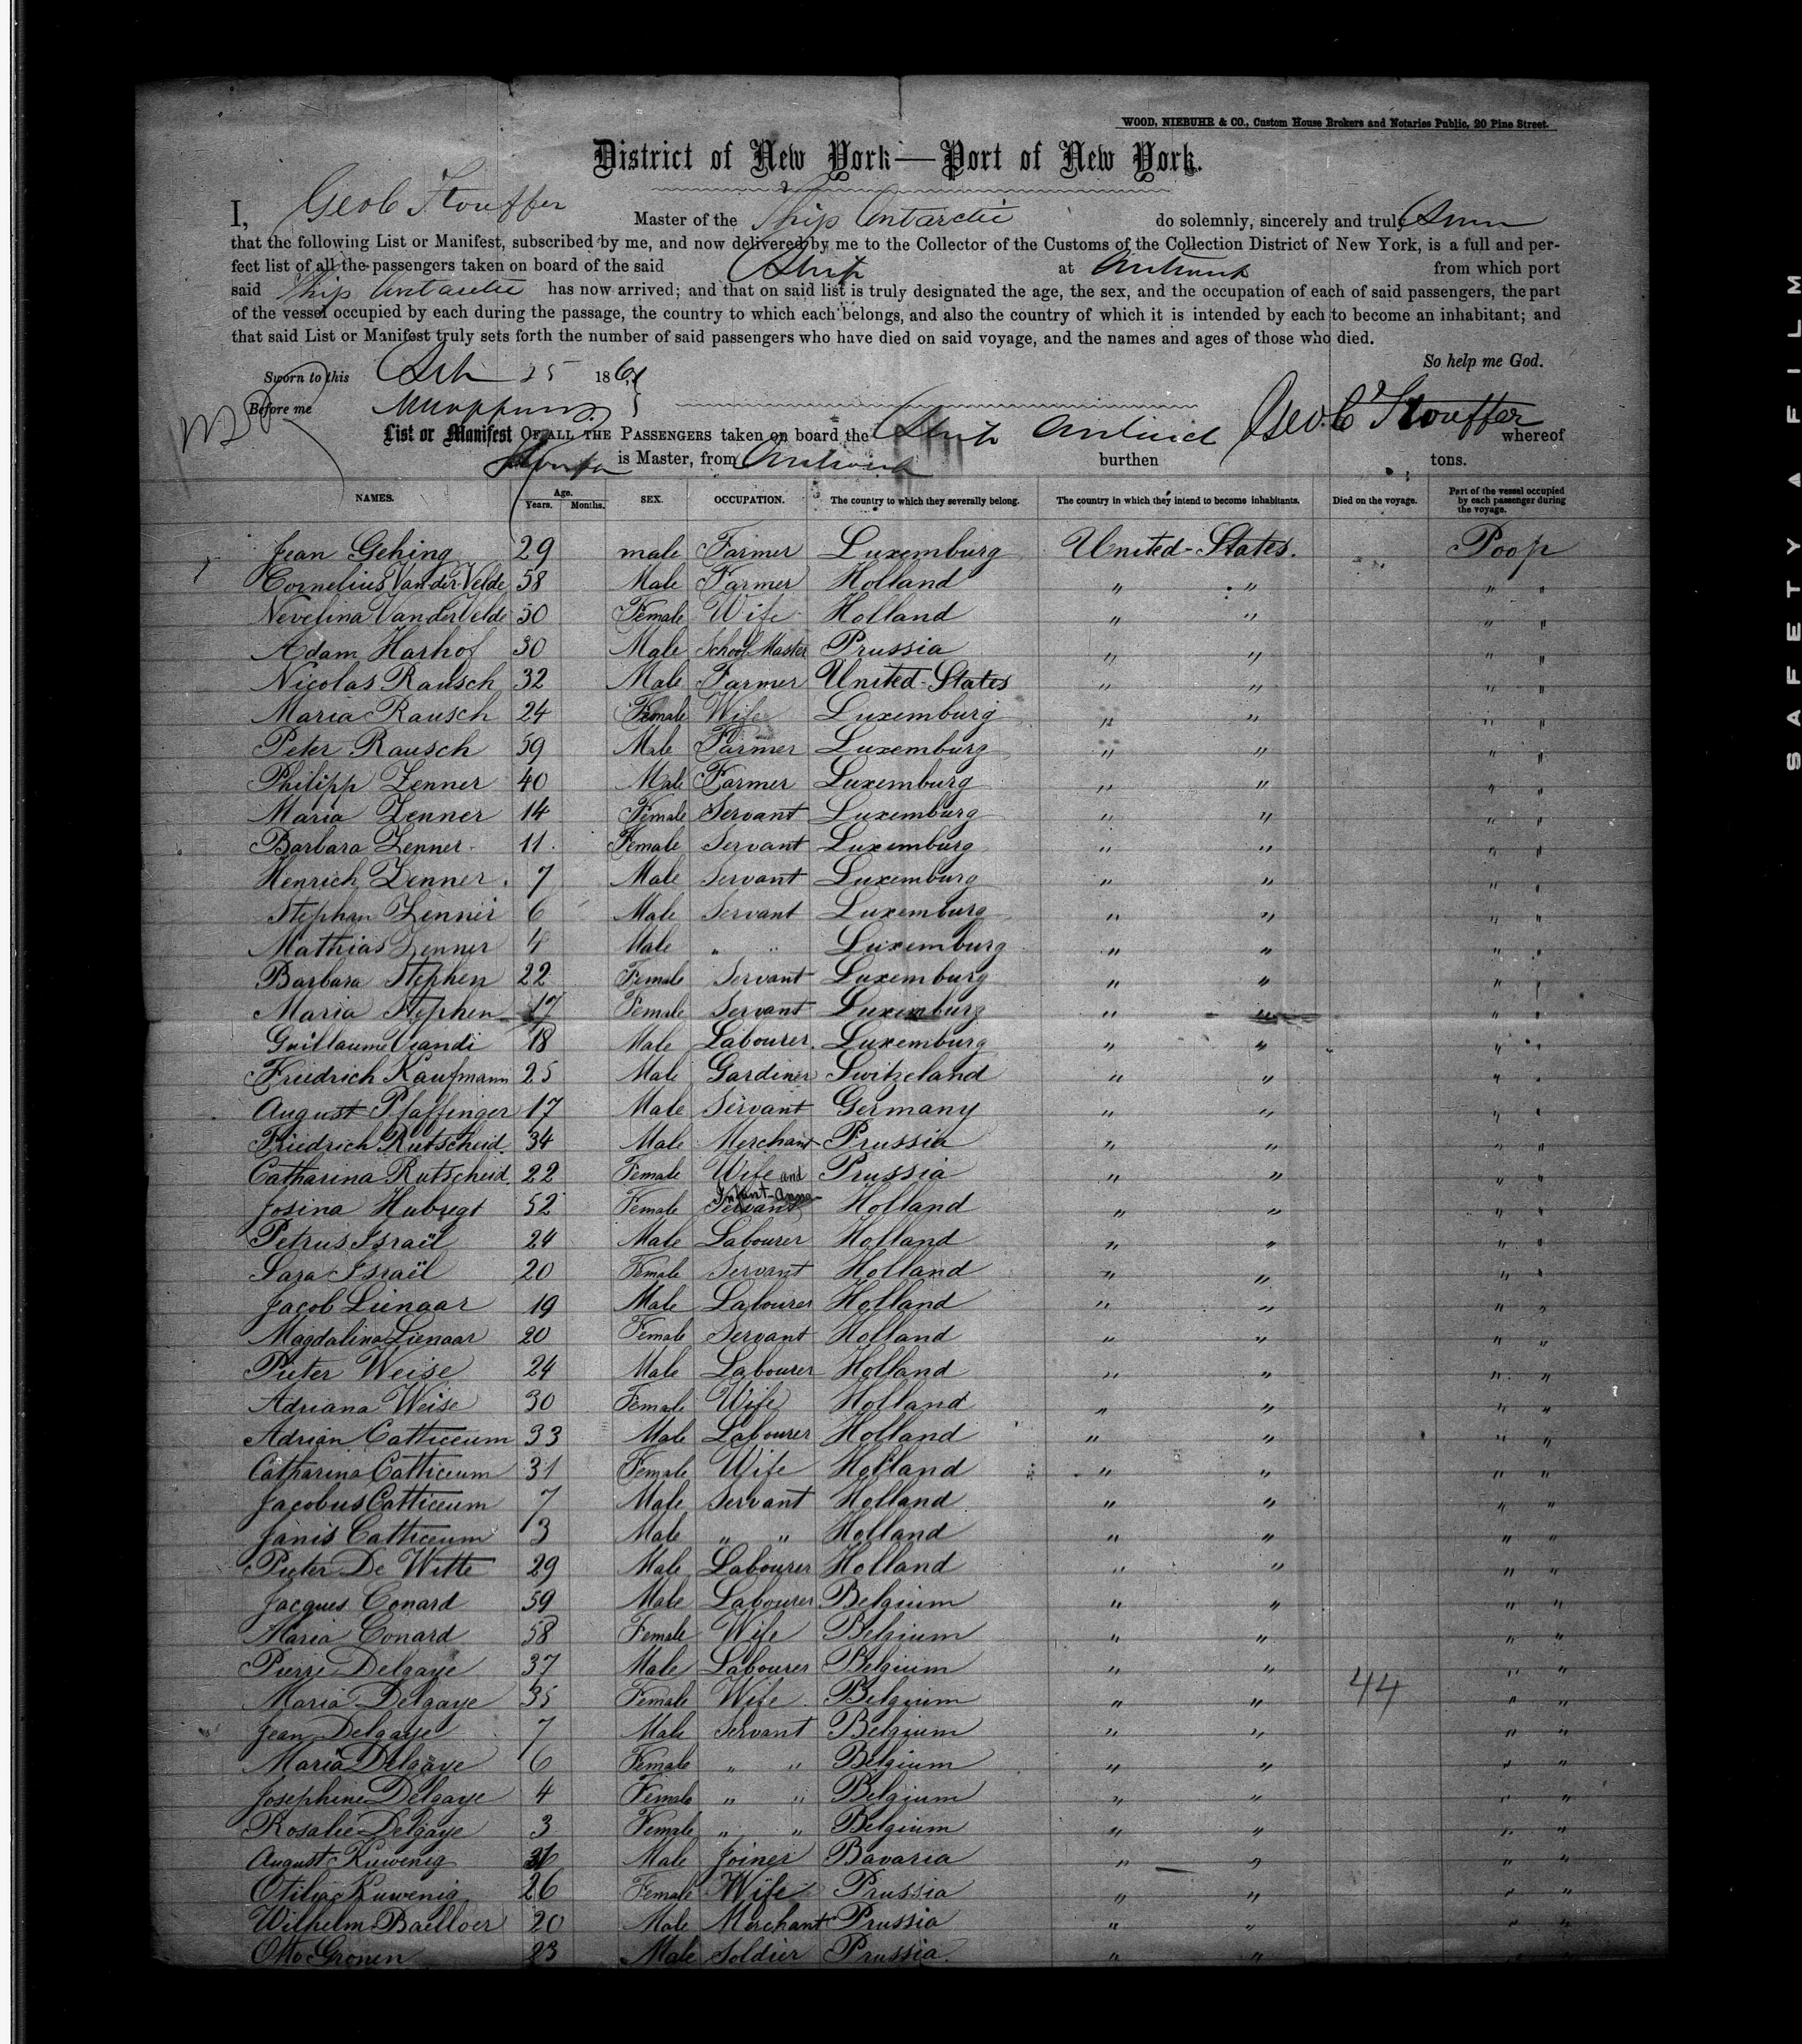 WOOD, NIEBUHR & CO., Custom House Brokers and Notaries Public, 20 Pine Street.
District of New York—Port of New York.
I, Geo C Stouffer Master of the Ship Antarctic do solemnly, sincerely and truly
that the following List or Manifest, subscribed by me, and now delivered by me to the Collector of the Customs of the Collection District of New York, is a full and per-
fect list of all the passengers taken on board of the said Ship at Antwerp from which port
said Ship Antarctic has now arrived; and that on said list is truly designated the age, the sex, and the occupation of each of said passengers, the part
of the vessel occupied by each during the passage, the country to which each belongs, and also the country of which it is intended by each to become an inhabitant; and
that said List or Manifest truly sets forth the number of said passengers who have died on said voyage, and the names and ages of those who died.
So help me God.
Sworn to this 25 186
Before me Geo. C Stouffer
List or Manifest OF ALL THE PASSENGERS taken on board the Ship Antarctic whereof
is Master, from Antwerp burthen tons.
NAMES. Age. Years. Months. SEX. OCCUPATION. The country to which they severally belong. The country in which they intend to become inhabitants. Died on the voyage. Part of the vessel occupied by each passenger during the voyage.
Jean Gehing 29 male Farmer Luxemburg United-States. Poop
Cornelius Van der Velde 58 Male Farmer Holland " " " "
Nevelina Van der Velde 50 Female Wife Holland " " " "
Adam Harhof 30 Male School Master Prussia " " " "
Nicolas Rausch 32 Male Farmer United-States " " " "
Maria Rausch 24 Female Wife Luxemburg " " " "
Peter Rausch 59 Male Farmer Luxemburg " " " "
Philipp Zenner 40 Male Farmer Luxemburg " " " "
Maria Zenner 14 Female Servant Luxemburg " " " "
Barbara Zenner 11 Female Servant Luxemburg " " " "
Henrich Zenner 7 Male Servant Luxemburg " " " "
Stephan Zenner 6 Male Servant Luxemburg " " " "
Mathias Zenner 4 Male " " Luxemburg " " " "
Barbara Stephen 22 Female Servant Luxemburg " " " "
Maria Stephen 17 Female Servant Luxemburg " " " "
Guillaume Viandi 18 Male Labourer Luxemburg " " " "
Friedrich Kaufmann 25 Male Gardiner Switzeland " " " "
August Pfaffinger 17 Male Servant Germany " " " "
Friedrich Rutscheid 34 Male Merchant Prussia " " " "
Catharina Rutscheid 22 Female Wife and Prussia " " " "
Infant-Anna
Josina Hubregt 52 Female Servant Holland " " " "
Petrus Israël 24 Male Labourer Holland " " " "
Sara Israël 20 Female Servant Holland " " " "
Jacob Lienaar 19 Male Labourer Holland " " " "
Magdalina Lienaar 20 Female Servant Holland " " " "
Pieter Weise 24 Male Labourer Holland " " " "
Adriana Weise 30 Female Wife Holland " " " "
Adrian Catticeum 33 Male Labourer Holland " " " "
Catharina Catticeum 31 Female Wife Holland " " " "
Jacobus Catticeum 7 Male Servant Holland " " " "
Janis Catticeum 3 Male " " Holland " " " "
Pieter De Witte 29 Male Labourer Holland " " " "
Jacques Conard 59 Male Labourer Belgium " " " "
Maria Conard 58 Female Wife Belgium " " " "
Pierre Delgaye 37 Male Labourer Belgium " " " "
Maria Delgaye 35 Female Wife Belgium " " 44 " "
Jean Delgaye 7 Male Servant Belgium " " " "
Maria Delgaye 6 Female " " Belgium " " " "
Josephine Delgaye 4 Female " " Belgium " " " "
Rosalie Delgaye 3 Female " " Belgium " " " "
August Kuwenig Male Joiner Bavaria " " " "
Otilia Kuwenig 26 Female Wife Prussia " " " "
Wilhelm Baelloer 20 Male Merchant Prussia " " " "
Otto Gronen 23 Male Soldier Prussia. " " " "
SAFETY A FILM